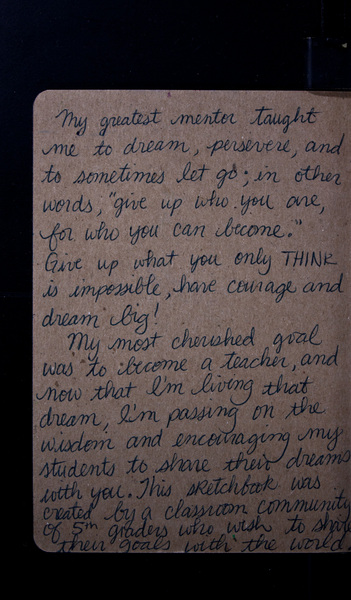 My greatest mentor taught
me to dream, persevere, and
to sometimes let go; in other
words, "give up who you are,
for who you can become."
Give up what you only THINK
is impossible, have courage and
dream big!
My most cherished goal
was to become a teacher, and
now that I'm living that
dream, I'm passing on the
wisdom and encouraging my
students to share their dreams
with you. This sketchbook was
created by a classroom community
of 5th graders who wish to share
their goals with the world.